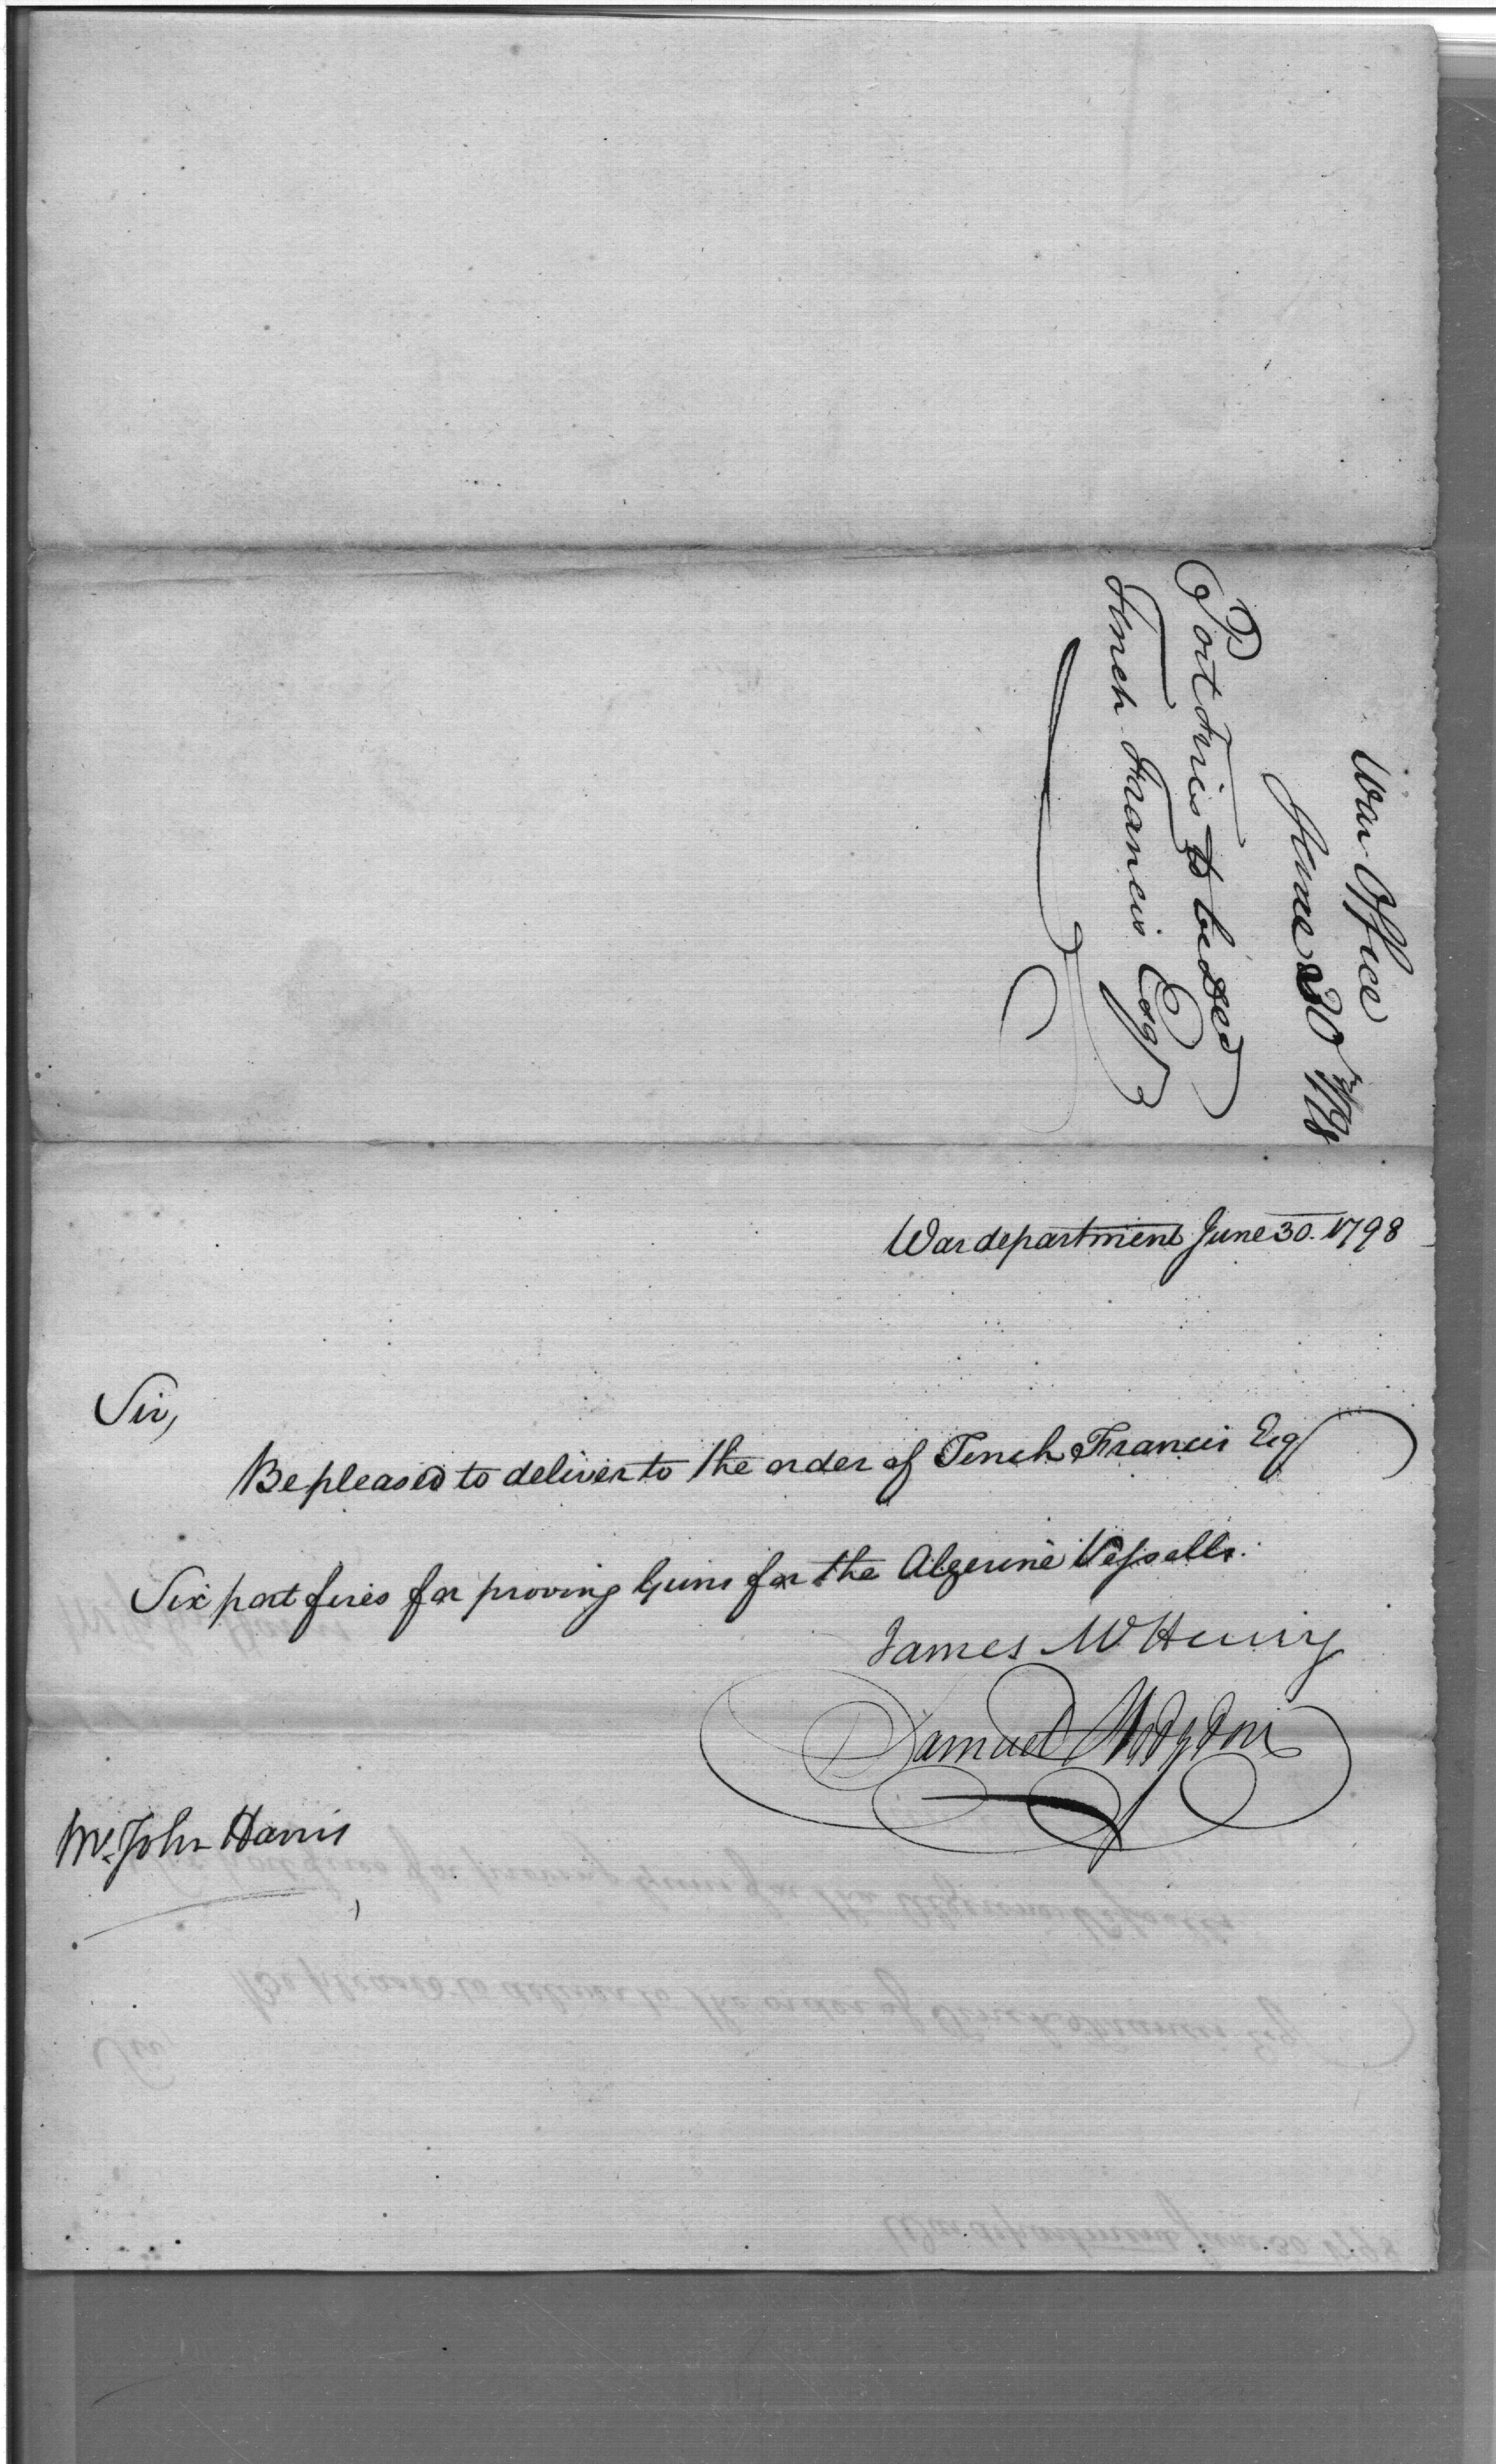 War Office
June 30 1798
Port Fires to be dd
Tench Francis Esqr
War department June 30. 1798
Sir,
Be pleased to deliver to the order of Tench Francis Esq
Six port fires for proving Guns for the Algerine Vessells.
James McHenry
Samuel Hodgdon
Mr. John Harris